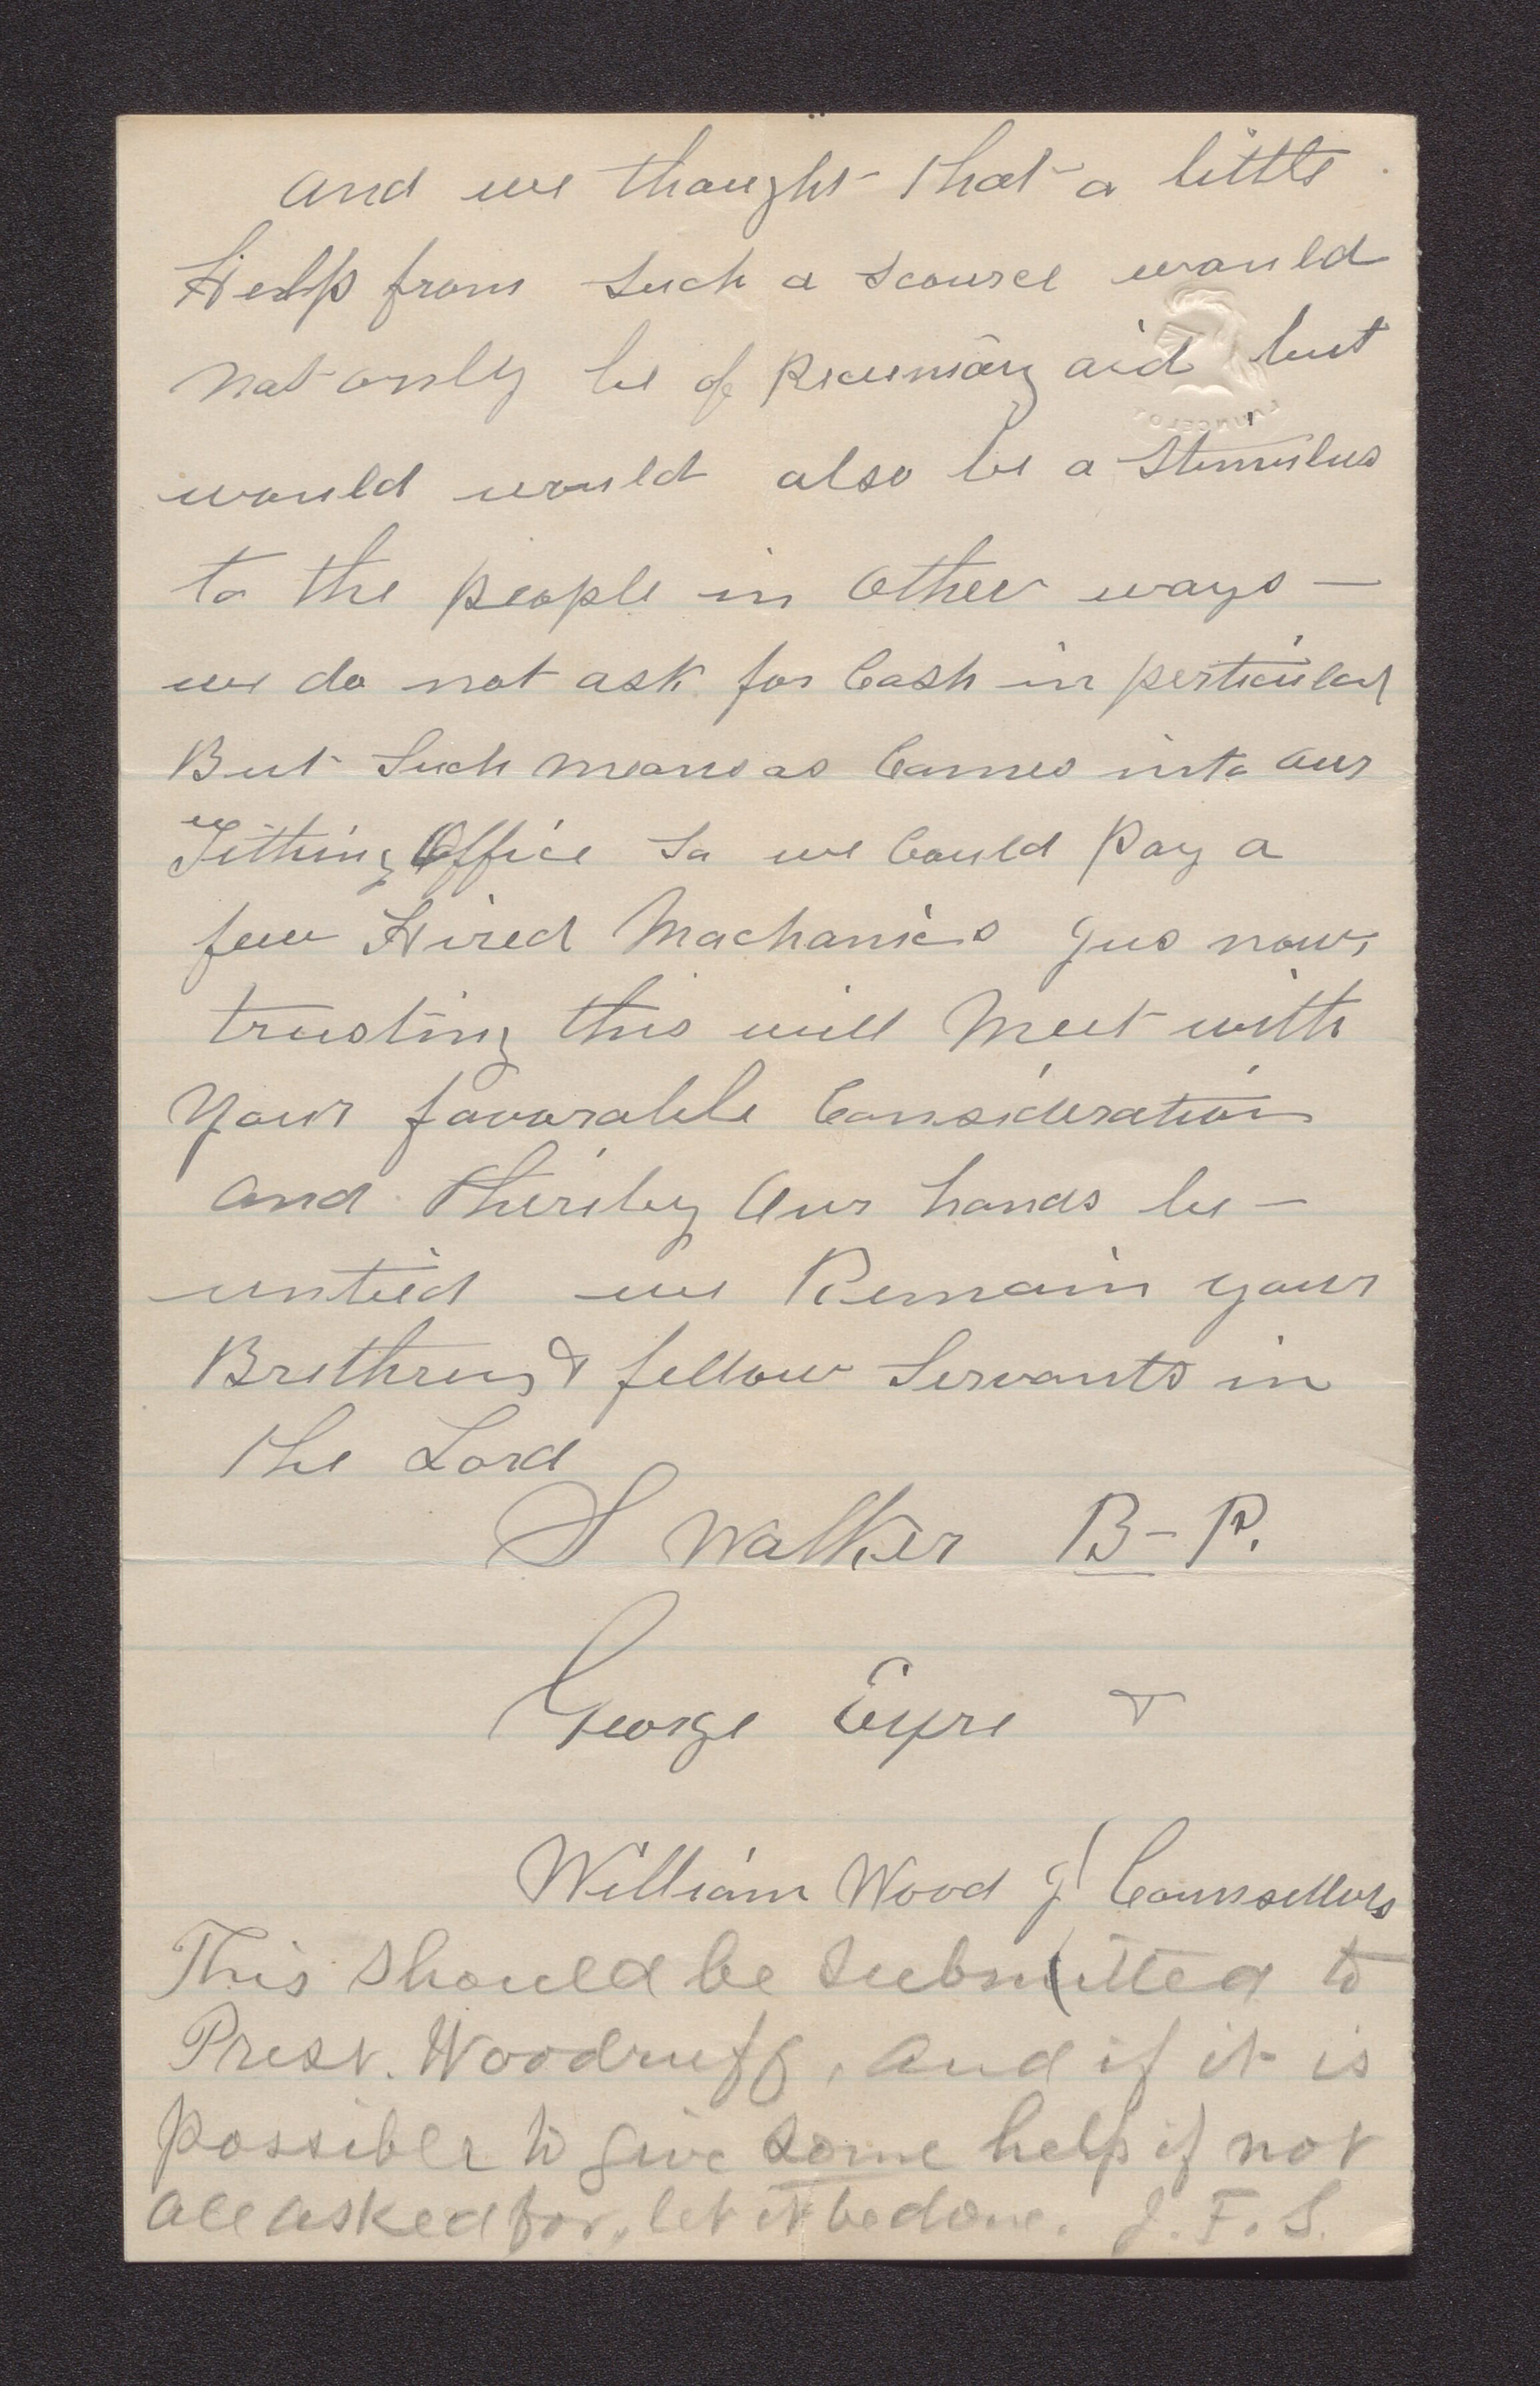 and we thought that a little
Help from such a scource would
not only be of pecuniary aid but
LAUNCELOT
would would also be a Stimulus
to the people in Other ways —
we do not ask for Cash in perticular
But Such means as Comes into our
Tithing Office so we Could pay a
few Hired Machanics jus now,
trusting this will Meet with
your favorable Consideration
and thereby Our hands be —
untied we Remain your
Brethren & fellow Servants in
the Lord
S Walker B – P.
George Eyre &
William Wood J Counsellors
This should be submitted to
Prest. Woodruff, and if it is
possible to give some help if not
all asked for, let it be done. J. F. S.